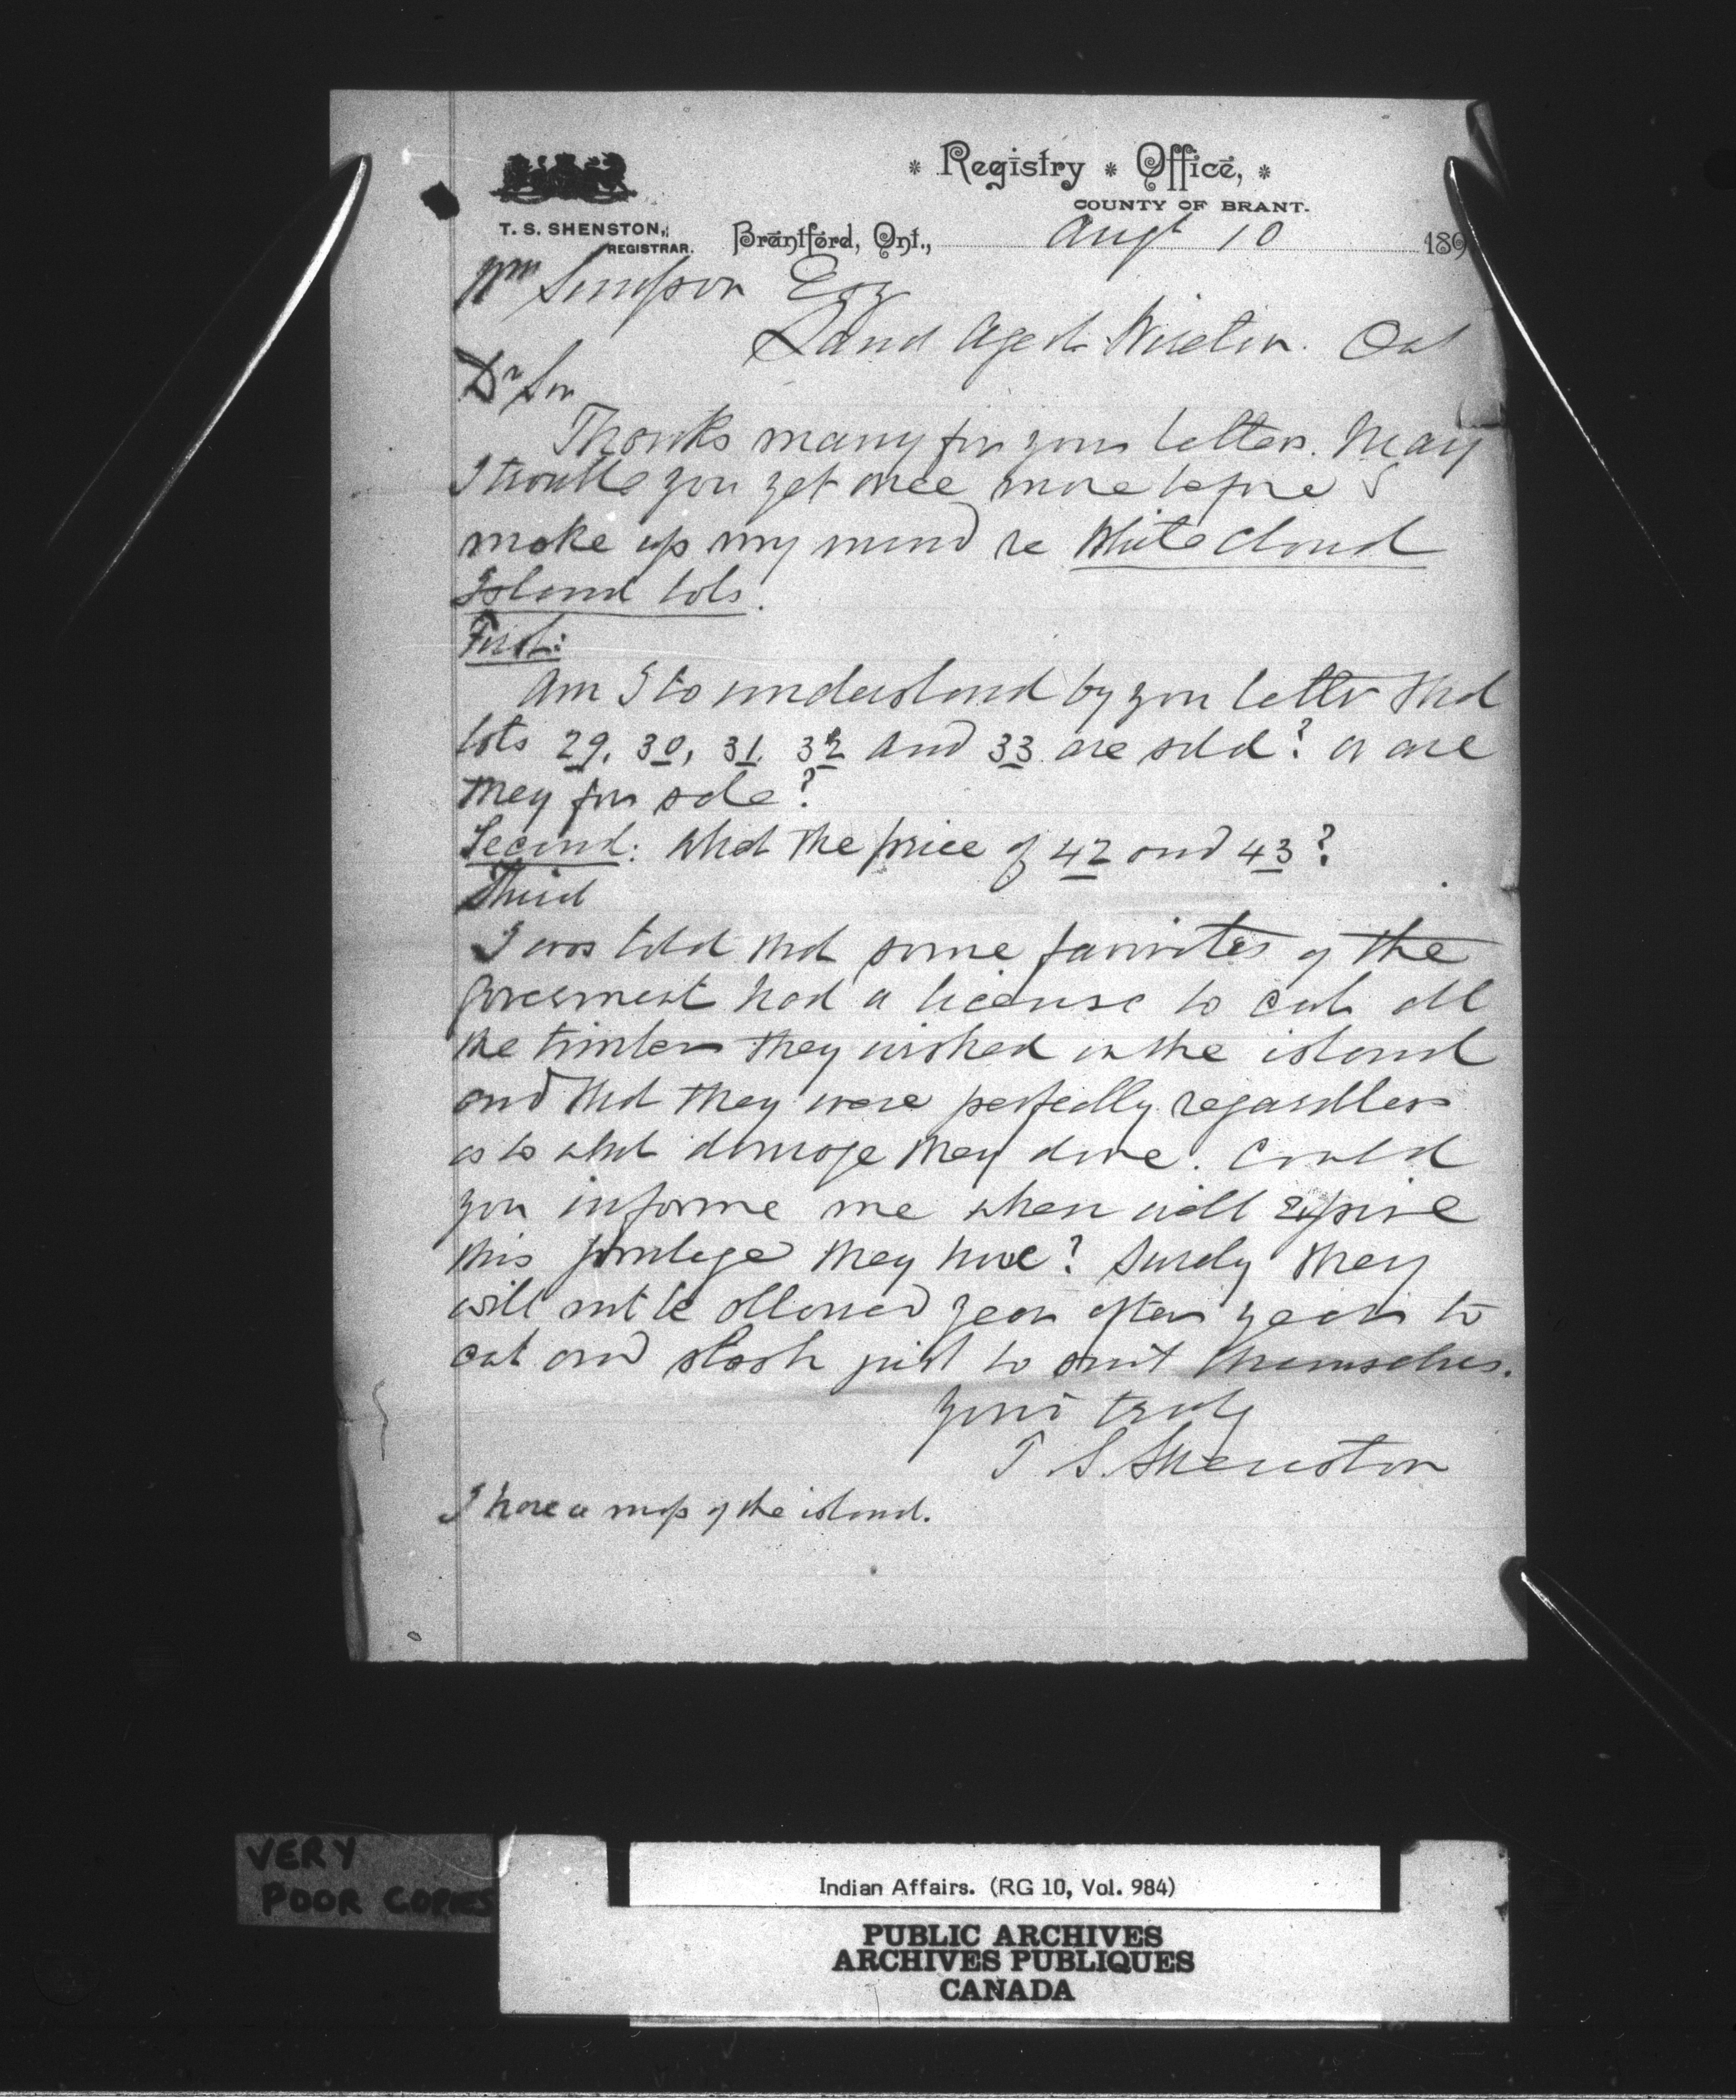 * Registry * Office, *
COUNTY OF BRANT.
T. S. SHENSTON,
REGISTRAR.
Brantford, Ont., Augt 10 189
Wm Simpson Esq
Land Agent Wiarton. Ont
Dr Sir
Thanks many for your letters. May
I trouble you yet once more before I
make up my mind re White Cloud
Island lots.
First:
Am I to understand by your letter that
lots 29, 30, 31, 32 and 33 are sold? or are
they for sale?
Second: What the price of 42 and 43?
Third
I was told that some favorites of the
Goverment had a license to cut all
the timber they wished on the island
and that they were perfectly regardless
as to what damage they done. Could
you informe me when will expire
this privilege they have? Surely they
will not be allowed year after year to
cut and slash just to suit themselves.
Yours truly
T. S. Shenston
I have a map of the island.
VERY
POOR COPIES
Indian Affairs. (RG 10, Vol. 984)
PUBLIC ARCHIVES
ARCHIVES PUBLIQUES
CANADA